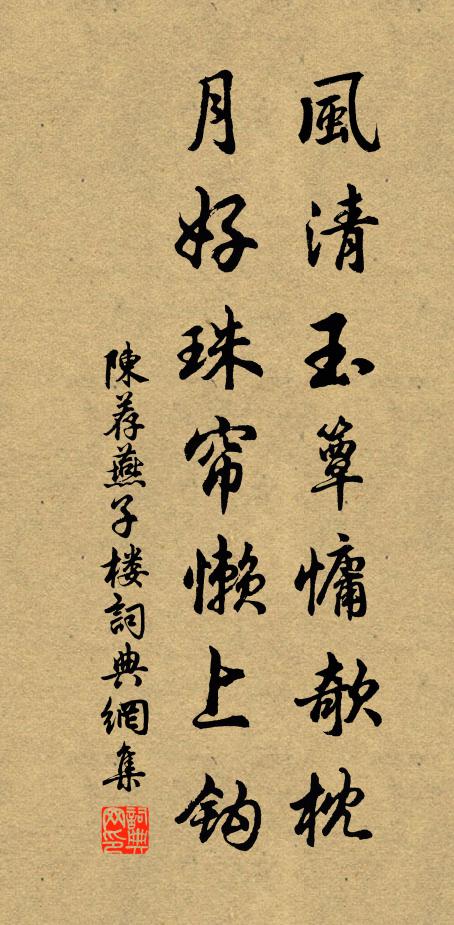 風清玉簟慵欹枕
月好珠帘懶上鈎
陳荐燕子楼詞典網集
詞典网印